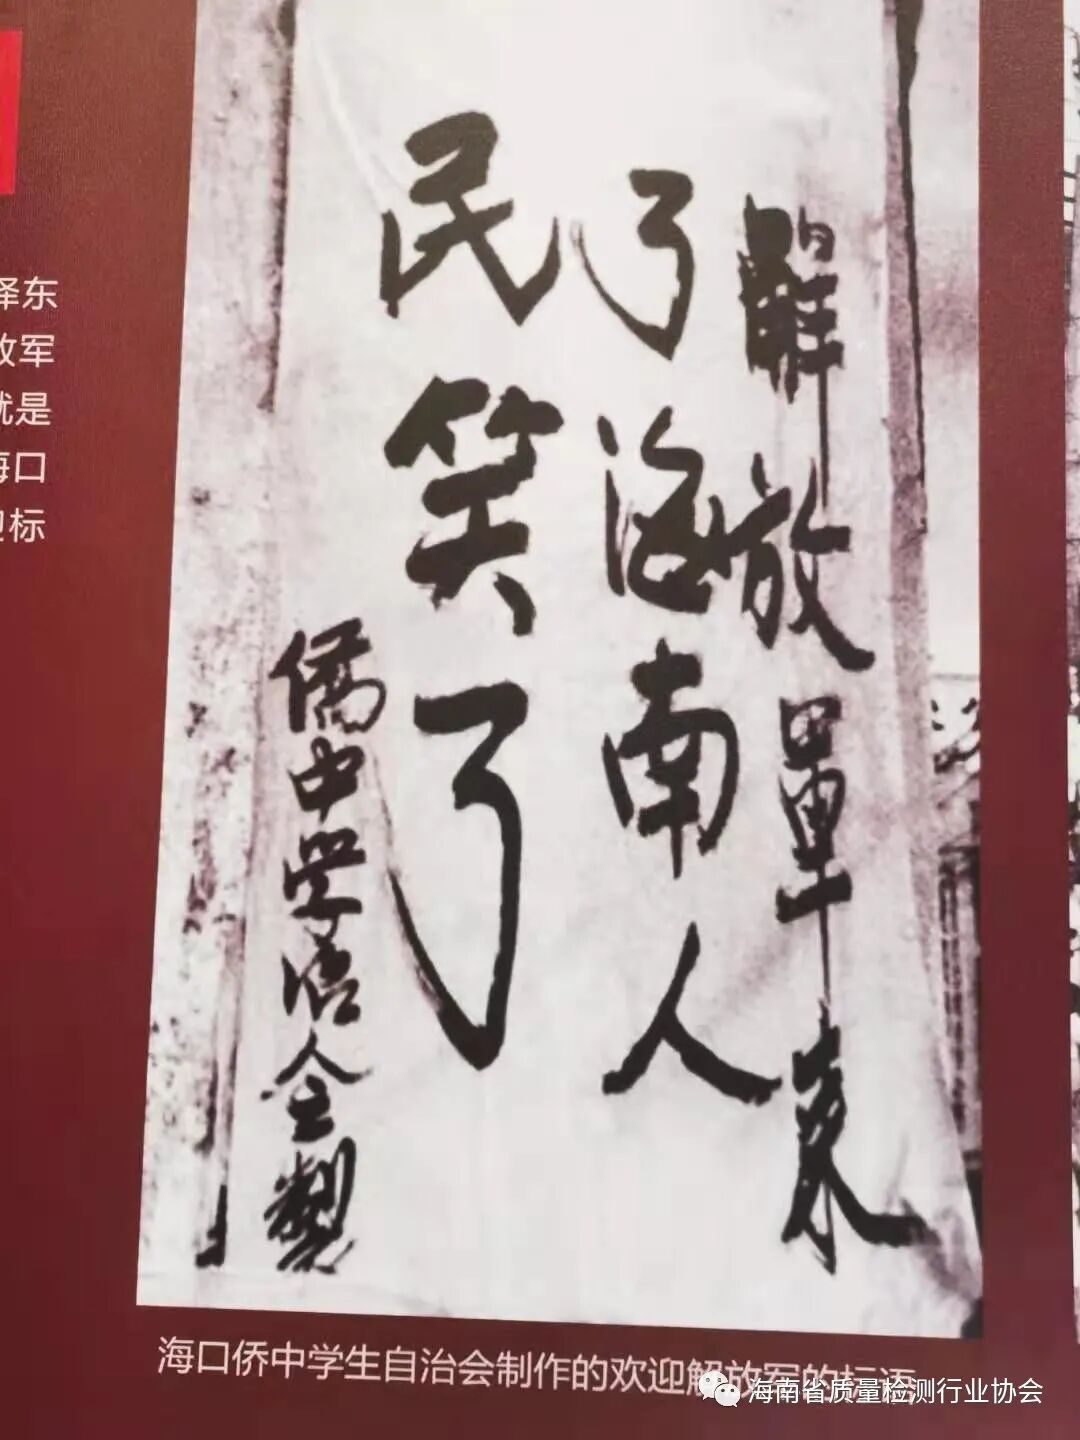 泽东
放军
就是
海口
迎标
解放軍来
了海南人
民笑了
僑中学治会製
海口侨中学生自治会制作的欢迎解放军的标语
海南省质量检测行业协会